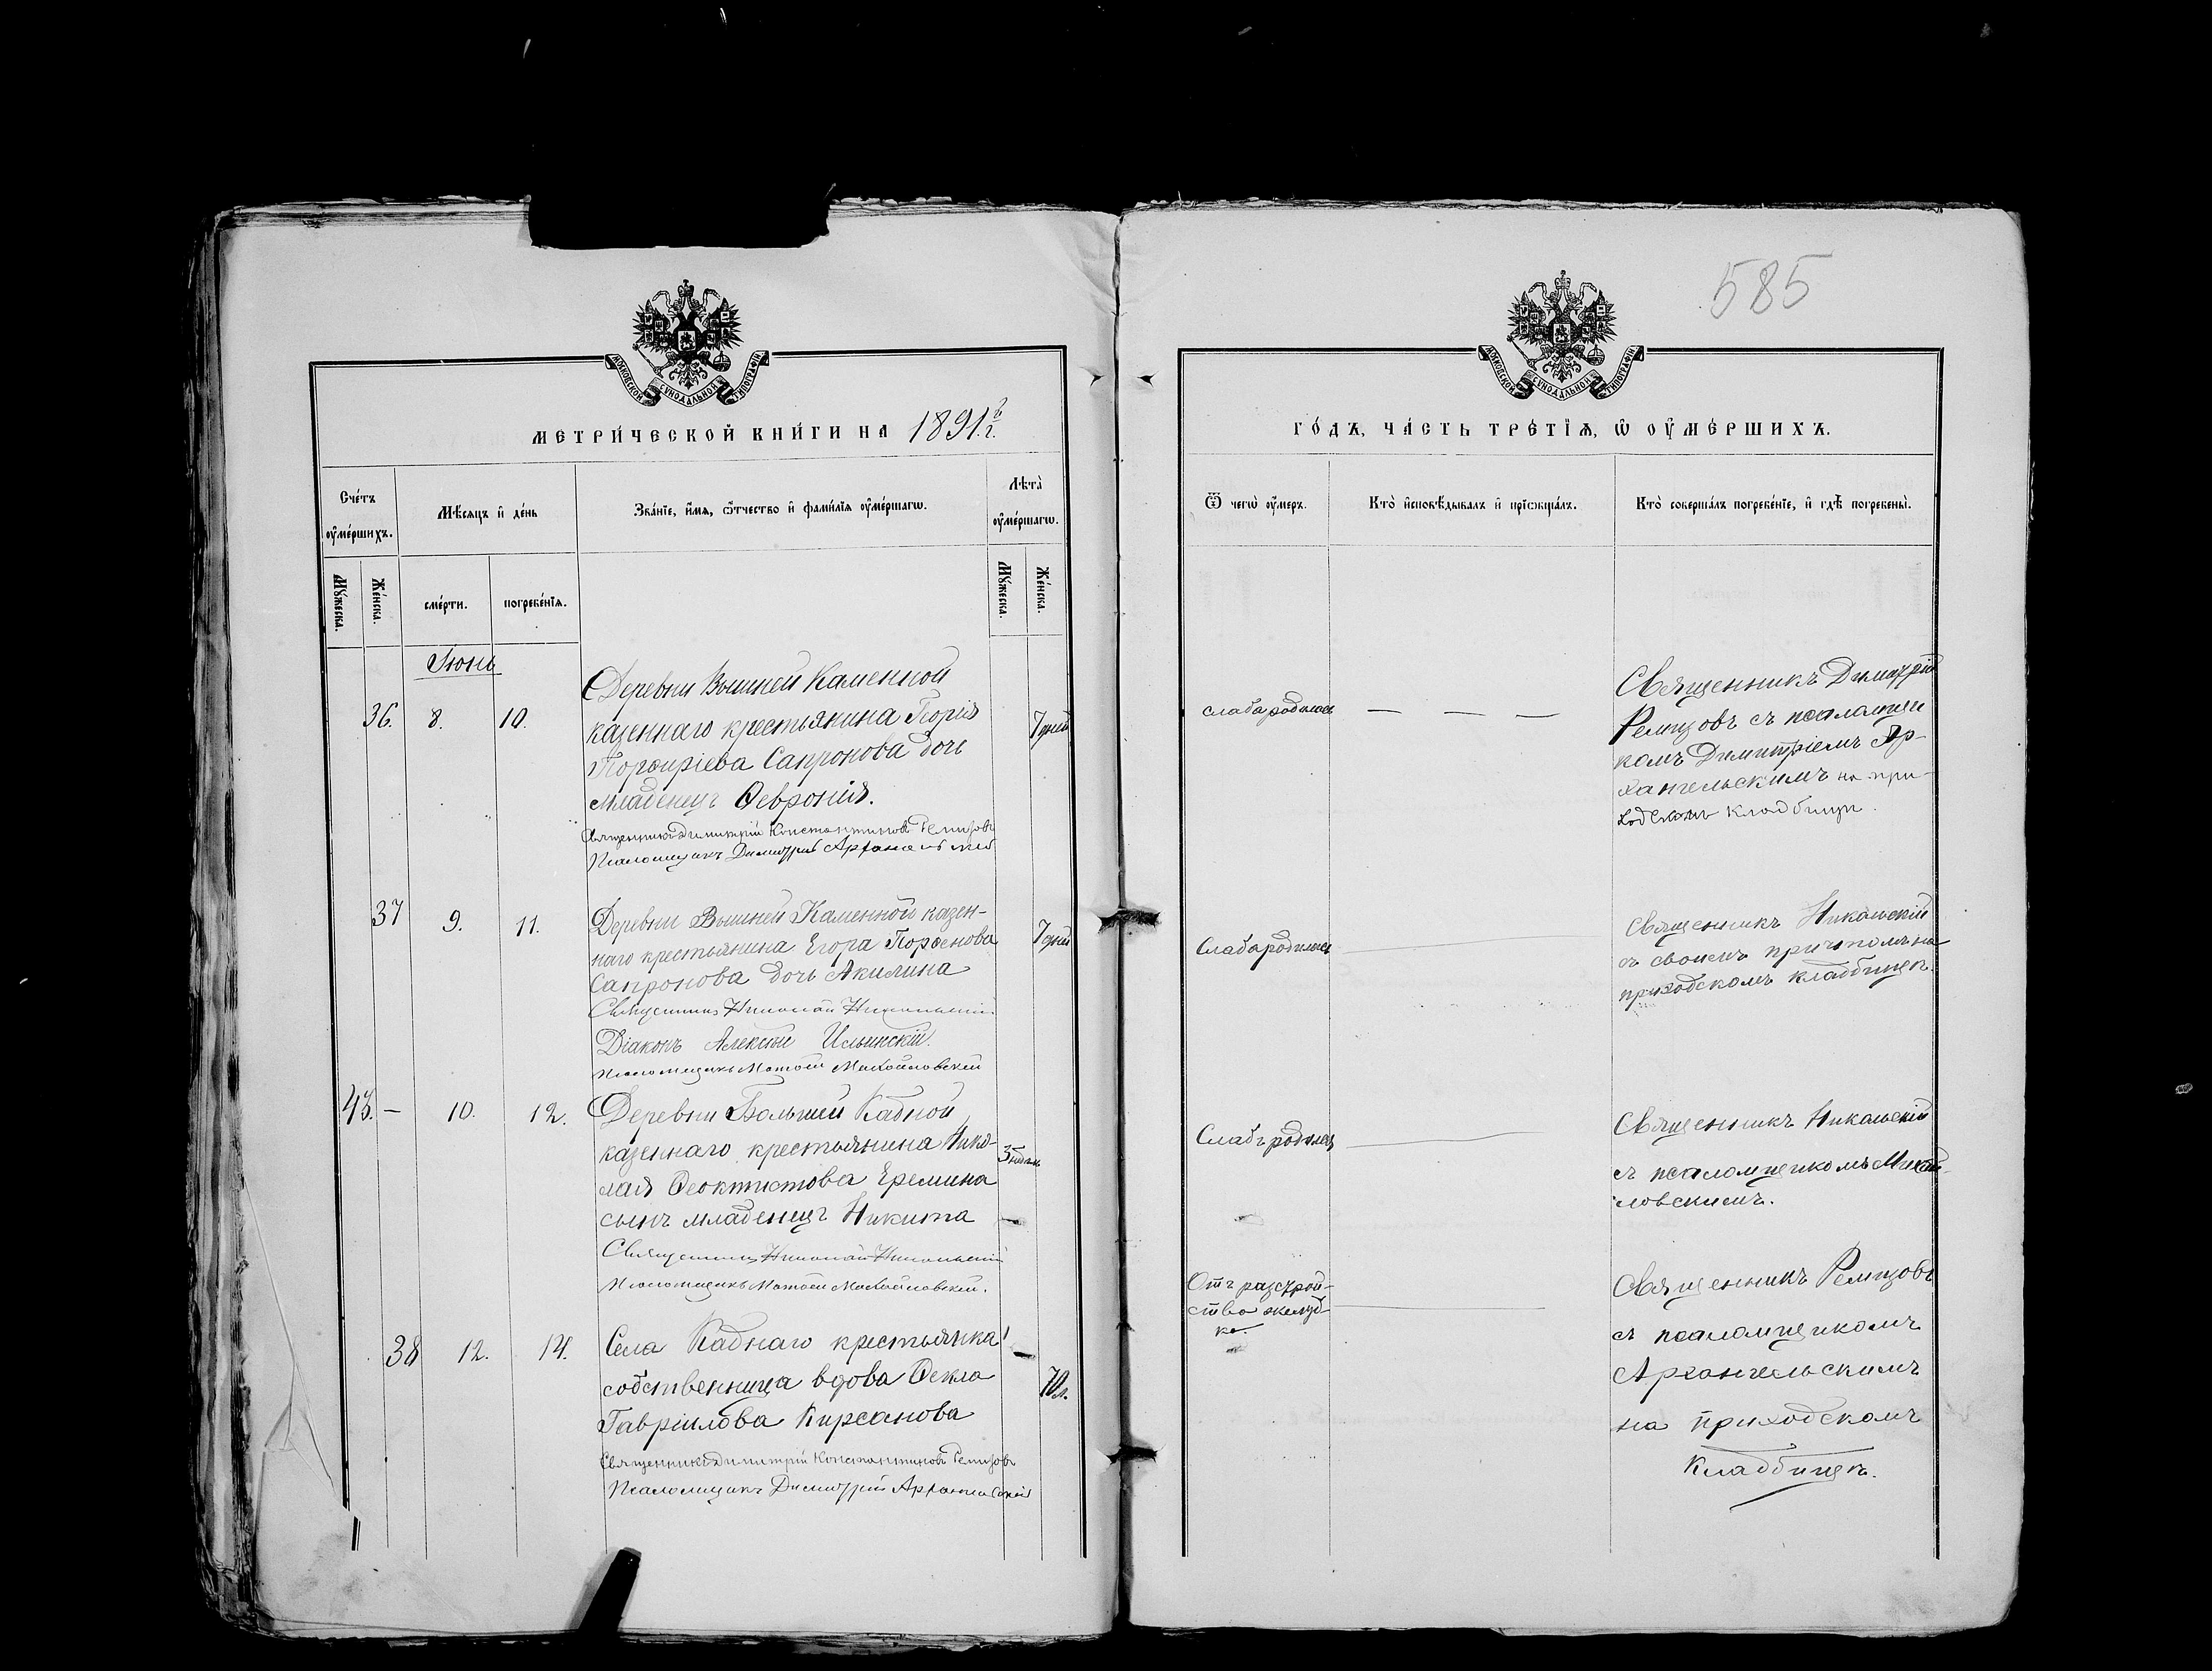 585
МОСКОВСКОЙ СУНОДАЛЬНОЙ ТИПОГРАФІИ
МЕТРИ́ЧЕСКОЙ КНИ́ГИ НА 1891 г.
Сче́тъ ᲂу҆ме́ршихъ.
Мѣ́сяцъ и҆ де́нь
Зва́нїе, и҆́мя, ѻ҆́тчество и҆ фами́лїя ᲂу҆ме́ршагѡ.
Лѣта̀ ᲂу҆ме́ршагѡ.
Мꙋ́жеска.
Же́нска.
сме́рти.
погребе́нїѧ.
Мꙋ́жеска.
Же́нска.
Іюнь
36. 8. 10.
Деревни Вышней Каменной
казеннаго крестьянина Георгія
Порфиріева Сапронова дочь
младенецъ Ѳевронія.
7 дней
Священникъ Димитрій Константиновъ Ремизовъ
Псаломщикъ Димитрій Архангельскій
37 9. 11.
Деревни Вышней Каменной казен-
наго крестьянина Егора Порфенова
Сапронова дочь Акилина
7 дней
Священникъ Николай Никольскій
Діаконъ Алексѣй Ильинскій.
Псаломщикъ Матѳей Михайловскій
43. – 10. 12.
Деревни Большей Кадной
казеннаго крестьянина Нико-
лая Ѳеоктистова Еремина
сынъ младенецъ Никита
Священникъ Николай Никольскій
Псаломщикъ Матѳей Михайловскій.
38 12. 14.
Села Каднаго крестьянка
собственница вдова Ѳекла
Гавріилова Кирсанова
70 л.
Священникъ Димитрій Константиновъ Ремизовъ
Псаломщикъ Димитрій Архангельскій
МОСКОВСКОЙ СУНОДАЛЬНОЙ ТИПОГРАФІИ
ГО́ДЪ, ЧА́СТЬ ТРЕ́ТЇѦ, Ѡ҆ ОУ҆МЕ́РШИХЪ.
Ѿ чегѡ̀ ᲂу҆́меръ.
Кто̀ и҆сповѣ́дывалъ и҆ прїѡбща́лъ.
Кто̀ соверша́лъ погребе́нїе, и҆ гдѣ̀ погребены̀.
слаба родилась — — —
Священникъ Димитрій
Ремизовъ съ псаломщи
комъ Димитріемъ Ар-
хангельскимъ на при-
ходскомъ кладбищи.
Слаба родилась
Священникъ Никольскій
съ своимъ причтомъ на
приходскомъ кладбищѣ.
Слабъ родился
Священникъ Никольскій
съ псаломщикомъ Михай-
ловскимъ.
Отъ разстрой-
ства желуд-
ка.
Священникъ Ремизовъ
съ псаломщикомъ
Архангельскимъ
на приходскомъ
кладбищѣ.